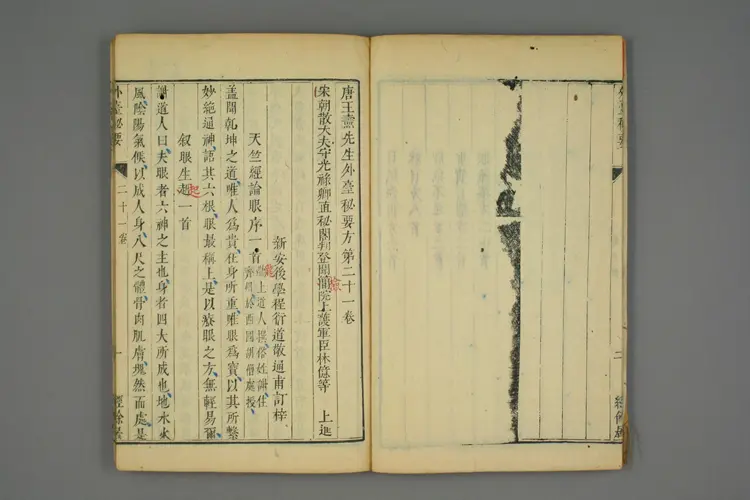 唐王燾先生外臺秘要方第二十一卷
宋朝散大夫守光祿卿直秘閣判登聞檢院上護軍臣林億等 上進
新安後學程衍道敬通甫訂梓
天竺經論眼序一首隴上道人撰俗姓謝住
齊州於西國胡僧處授
蓋聞乾坤之道唯人為貴在身所重唯眼為寶以其所繫
妙絕通神語其六根眼最稱上是以療眼之方無輕易爾
叙眼生起一首
謝道人曰夫眼者六神之主也身者四大所成也地水火
風陰陽氣候以成人身八尺之體骨肉肌膚塊然而處是
外臺秘要
二十一卷
一
經餘居
外臺秘要
二
經餘居